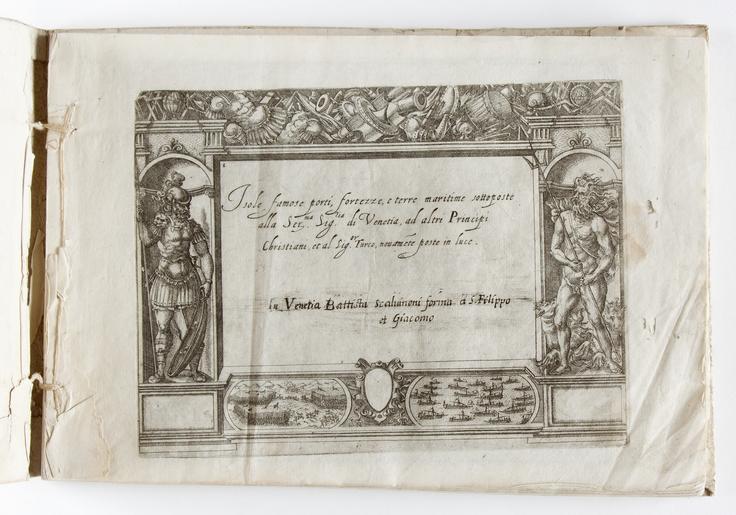 Isole famose porti, fortezze, e terre maritime sottoposte
alla Ser.ma Sig.ria di Venetia, ad altri Principi
Christiani, et al Sig.or Turco, novamẽte poste in luce.
In Venetia Battista Scalvinoni forma a S. Filippo
et Giacomo